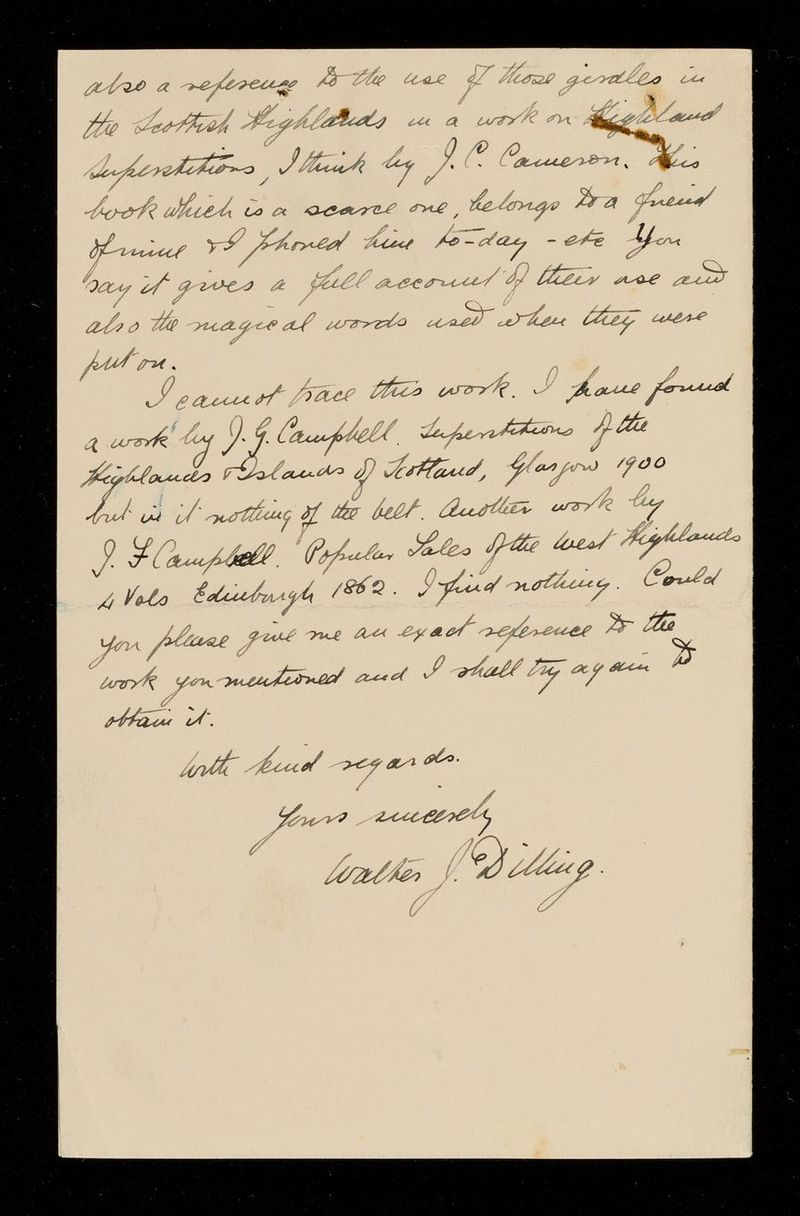 also a reference to the use of those girdles in
the Scottish Highlands in a work on Highland
Superstitions, I think by J. C. Cameron. This
book which is a scarce one, belongs to a friend
of mine & I phoned him to-day - etc You
say it gives a full account of their use and
also the magical words used when they were
put on.
I cannot trace this work. I have found
a work by J. G. Campbell. Superstitions of the
Highlands & Islands of Scotland, Glasgow 1900
but in it nothing of the belt. Another work by
J. F Campbell. Popular Tales of the West Highlands
4 Vols Edinburgh 1862. I find nothing. Could
you please give me an exact reference to the
work you mentioned and I shall try again to
obtain it.
With kind regards.
Yours sincerely
Walter J. Dilling.